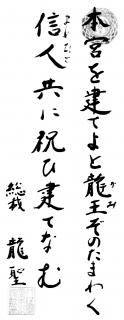 本宮を建てよと龍王ぞのたまわく
信人共に祝ひ建てなむ
総裁 龍聖